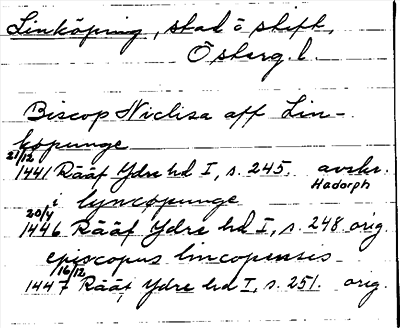 Linköping, stad o stift,
Österg. l.
Biscop Niclisa aff Lin-
köpunge
21/12
1441 Rääf Ydre hd I, s. 245. avskr.
Hadorph
i lyncopunge
20/4
1446 Rääf Ydre hd I, s. 248 orig.
episcopus lincopensis
16/12
1447 Rääf Ydre hd I, s. 251. orig.